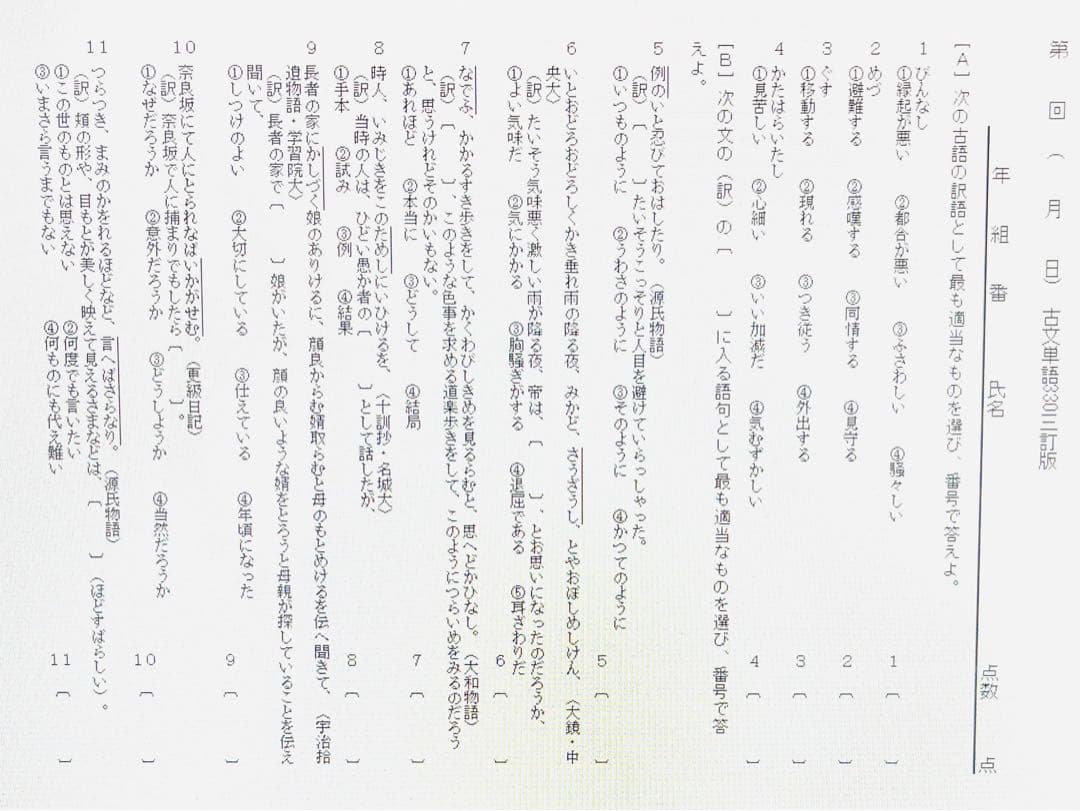 第　回　（　月　日）　古文単語330三訂版
年　組　番　氏名　点数　点
［A］次の古語の訳語として最も適当なものを選び、番号で答えよ。
1　びんなし
①縁起が悪い　②都合が悪い　③ふさわしい　④騒々しい
1〔　〕
2　めづ
①避難する　②感嘆する　③同情する　④見守る
2〔　〕
3　ぐす
①移動する　②現れる　③つき従う　④外出する
3〔　〕
4　かたはらいたし
①見苦しい　②心細い　③いい加減だ　④気むずかしい
4〔　〕
［B］次の文の（訳）の〔　〕に入る語句として最も適当なものを選び、番号で答
えよ。
5　例のいと忍びておはしたり。（源氏物語）
（訳）〔　〕たいそうこっそりと人目を避けていらっしゃった。
①いつものように　②うわさのように　③そのように　④かつてのように
5〔　〕
6　いとおどろおどろしくかき垂れ雨の降る夜、みかど、さうざうし、とやおぼしめしけん、〈大鏡・中
央大〉
（訳）たいそう気味悪く激しい雨が降る夜、帝は、〔　〕、とお思いになったのだろうか、
①よい気味だ　②気にかかる　③胸騒ぎがする　④退屈である　⑤耳ざわりだ
6〔　〕
7　なでふ、かかるすき歩きをして、かくわびしきめを見るらむと、思へどかひなし。（大和物語）
（訳）〔　〕、このような色事を求める道楽歩きをして、このようにつらいめをみるのだろう
と、思うけれどそのかいもない。
①あれほど　②本当に　③どうして　④結局
7〔　〕
8　時人、いみじきをこのためしにいひけるを、〈十訓抄・名城大〉
（訳）当時の人は、ひどい愚か者の〔　〕として話したが、
①手本　②試み　③例　④結果
8〔　〕
9　長者の家にかしづく娘のありけるに、顔良からむ婿取らむと母のもとめけるを伝へ聞きて、〈宇治拾
遺物語・学習院大〉
（訳）長者の家で〔　〕娘がいたが、顔の良いような婿をとろうと母親が探していることを伝え
聞いて、
①しつけのよい　②大切にしている　③仕えている　④年頃になった
9〔　〕
10　奈良坂にて人にとられなばいかがせむ。（更級日記）
（訳）奈良坂で人に捕まりでもしたら〔　〕。
①なぜだろうか　②意外だろうか　③どうしようか　④当然だろうか
10〔　〕
11　つらつき、まみのかをれるほどなど、言へばさらなり。（源氏物語）
（訳）頬の形や、目もとが美しく映えて見えるさまなどは、〔　〕（ほどすばらしい）。
①この世のものとは思えない　②何度でも言いたい
③いまさら言うまでもない　④何ものにも代え難い
11〔　〕